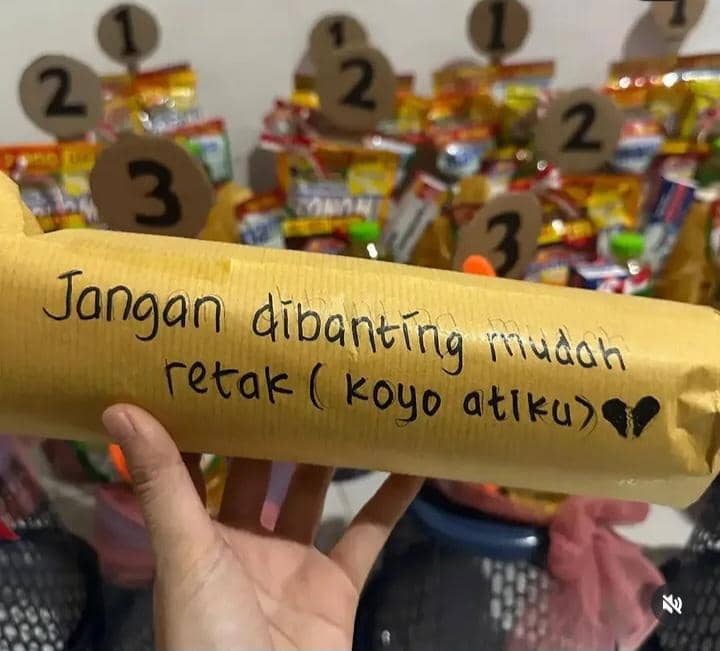 1
1
1
1
2
2
2
3
3
Jangan dibanting mudah
retak ( koyo atiku)